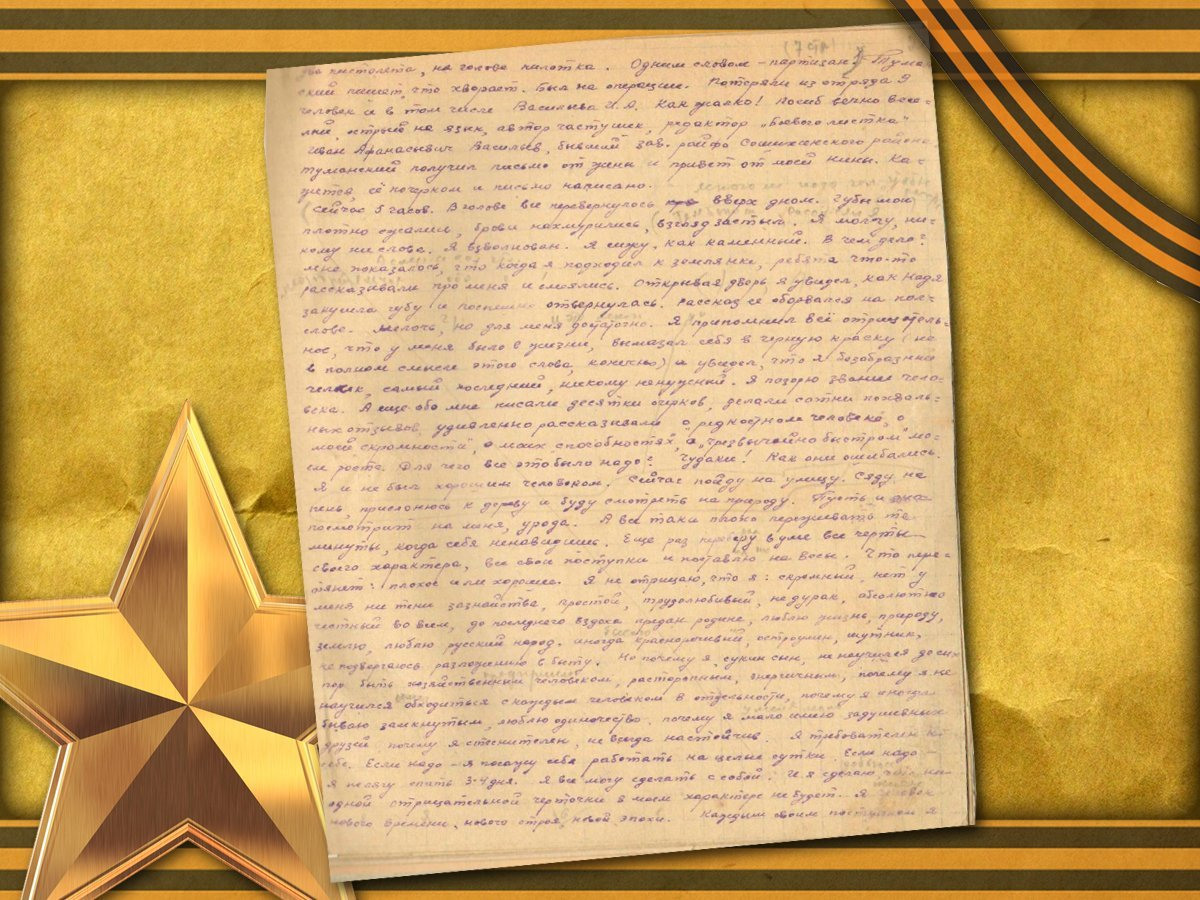 два пистолета, на голове пилотка. Одним словом – партизан. Тума-
ский пишет, что хворает. Был на операции. Потеряли из отряда 9
человек и в том числе Васильева И.А. Как жалко! Погиб вечно весё-
лый, острый на язык, автор частушек, редактор „Боевого листка"
Иван Афанасьевич Васильев, бывший зав. райфо Сошихинского района.
Туманский получил письмо от жены и привет от моей Нины. Ка-
жется, её почерком и письмо написано.
Сейчас 5 часов. В голове все перевернулось вверх дном. Губы мои
плотно сжались, брови нахмурились, взгляд застыл. Я молчу, ни-
кому ни слова. Я взволнован. Я сижу, как каменный. В чем дело?
Мне показалось, что когда я подходил к землянке, ребята что-то
рассказывали про меня и смеялись. Открывая дверь, я увидел, как Надя
закусила губу и поспешно отвернулась. Рассказ её оборвался на пол-
слове. Мелочь, но для меня достаточно. Я припомнил всё отрицатель-
ное, что у меня было в жизни, вымазал себя в черную краску (не
в полном смысле этого слова, конечно) и увидел, что я безобразный
человек, самый последний, никому ненужный. Я позорю звание чело-
века. А еще обо мне писали десятки очерков, делали сотни похваль-
ных отзывов, удивленно рассказывали о „редкостном человеке", о
„моей скромности", о моих способностях, о „чрезвычайно быстром" мо-
ем росте. Для чего все это было надо? Чудаки! Как они ошибались.
Я и не был хорошим человеком. Сейчас пойду на улицу. Сяду на
пень, прислонюсь к дереву и буду смотреть на природу. Пусть и она
посмотрит на меня, урода. А все таки плохо переживать те
минуты, когда себя ненавидишь. Еще раз переберу в уме все черты
своего характера, все свои поступки и поставлю на весы. Что пере-
тянет: плохое или хорошее. Я не отрицаю, что я: скромный, нет у
меня ни тени зазнайства, простой, трудолюбивый, не дурак, абсолютно
честный во всем, до последнего вздоха предан родине, люблю жизнь, природу,
землю, люблю русский народ. Иногда красноречивый, остроумен, шутник,
не подвергаюсь разложению в быту. Но почему я, сукин сын, не научился до сих
пор быть хозяйственным человеком, расторопным, энергичным, почему я не
научился обходиться с каждым человеком в отдельности, почему я иногда
бываю замкнутым, люблю одиночество, почему я мало имею задушевных
друзей, почему я стеснителен, не всегда настойчив. Я требователен к
себе. Если надо – я посажу себя работать на целые сутки. Если надо –
я лягу спать 3-4 дня. Я все могу сделать с собой. И я сделаю, ни
одной отрицательной черточки в моем характере не будет. Я человек
нового времени, нового строя, новой эпохи. Каждым своим поступком я